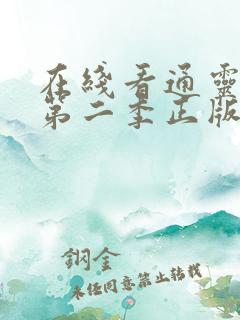 在綫看通靈
第二季正版
鋼金
未経同意禁止转载